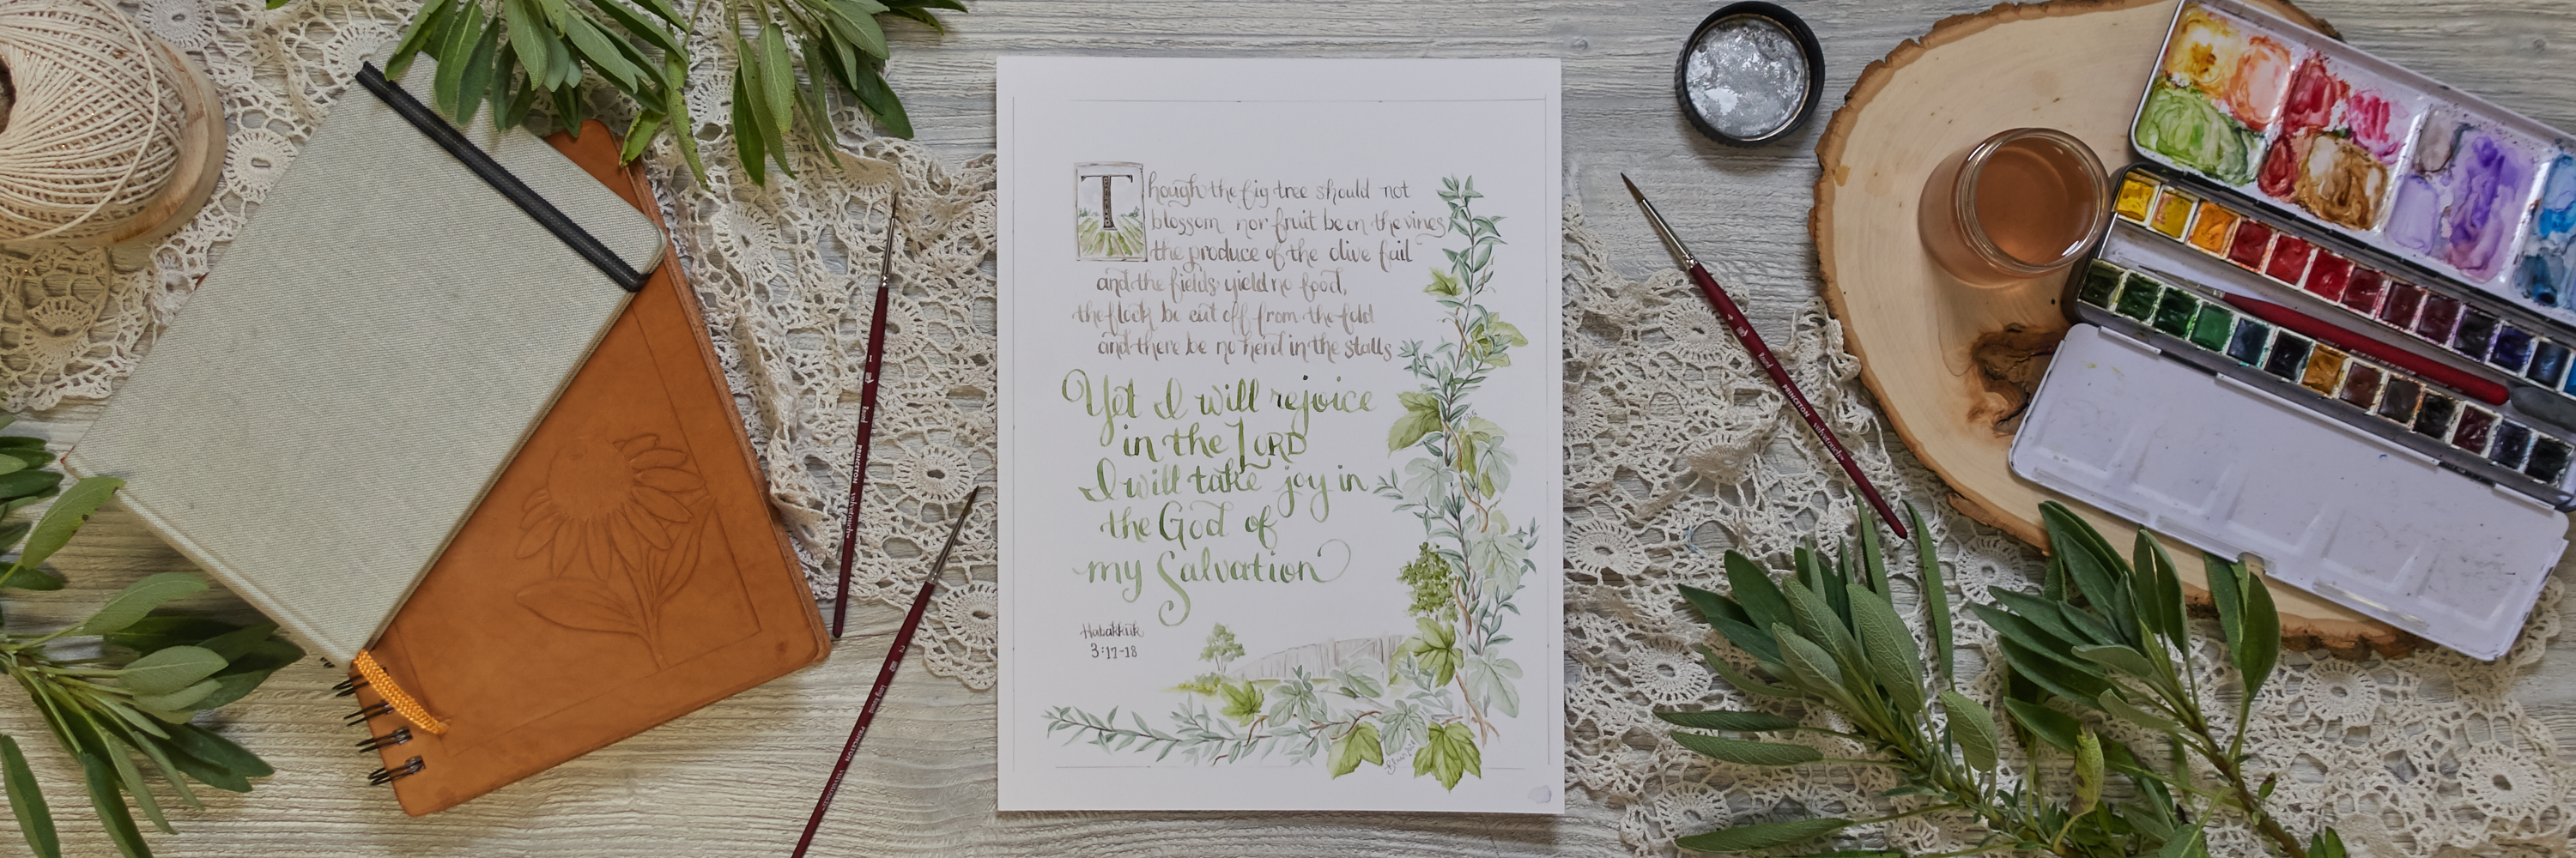 Though the fig tree should not
blossom nor fruit be on the vines
the produce of the olive fail
and the fields yield no food,
the flock be cut off from the fold
and there be no herd in the stalls
Yet I will rejoice
in the LORD
I will take joy in
the God of
my Salvation
Habakkuk
3:17-18
PRINCETON
PRINCETON